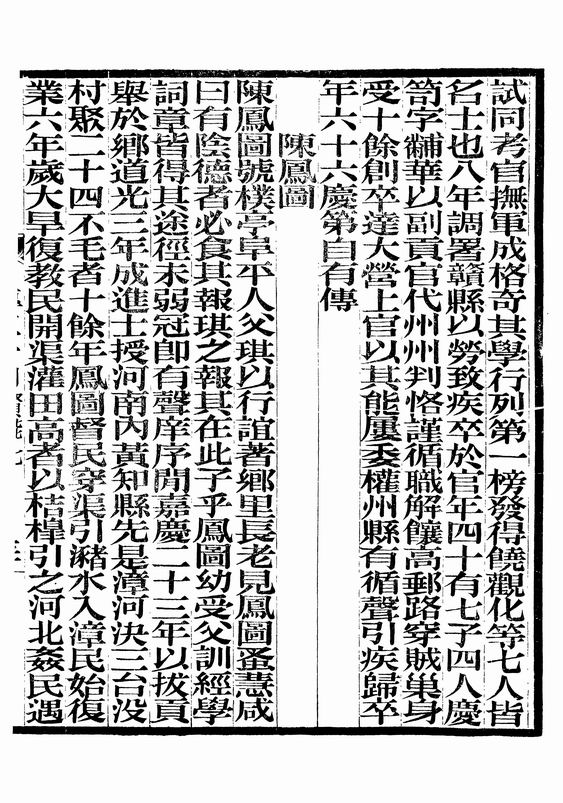 試同考官撫軍成格奇其學行列第一榜發得饒觀化等七人皆
名士也八年調署贛縣以勞致疾卒於官年四十有七子四人慶
笴字黼華以副貢官代州州判恪謹循職解饟高郵路穿賊巢身
受十餘創卒達大營上官以其能屢委權州縣有循聲引疾歸卒
年六十六慶第自有傳
陳鳳圖
陳鳳圖號樸亭阜平人父琪以行誼著鄉里長老見鳳圖蚤慧咸
曰有陰德者必食其報琪之報其在此子乎鳳圖幼受父訓經學
詞章皆得其途徑未弱冠卽有聲庠序閒嘉慶二十三年以拔貢
舉於鄉道光三年成進士授河南內黃知縣先是漳河決三台沒
村聚二十四不毛者十餘年鳳圖督民穿渠引瀦水入漳民始復
業六年歲大旱復教民開渠灌田高者以桔槹引之河北姦民遇